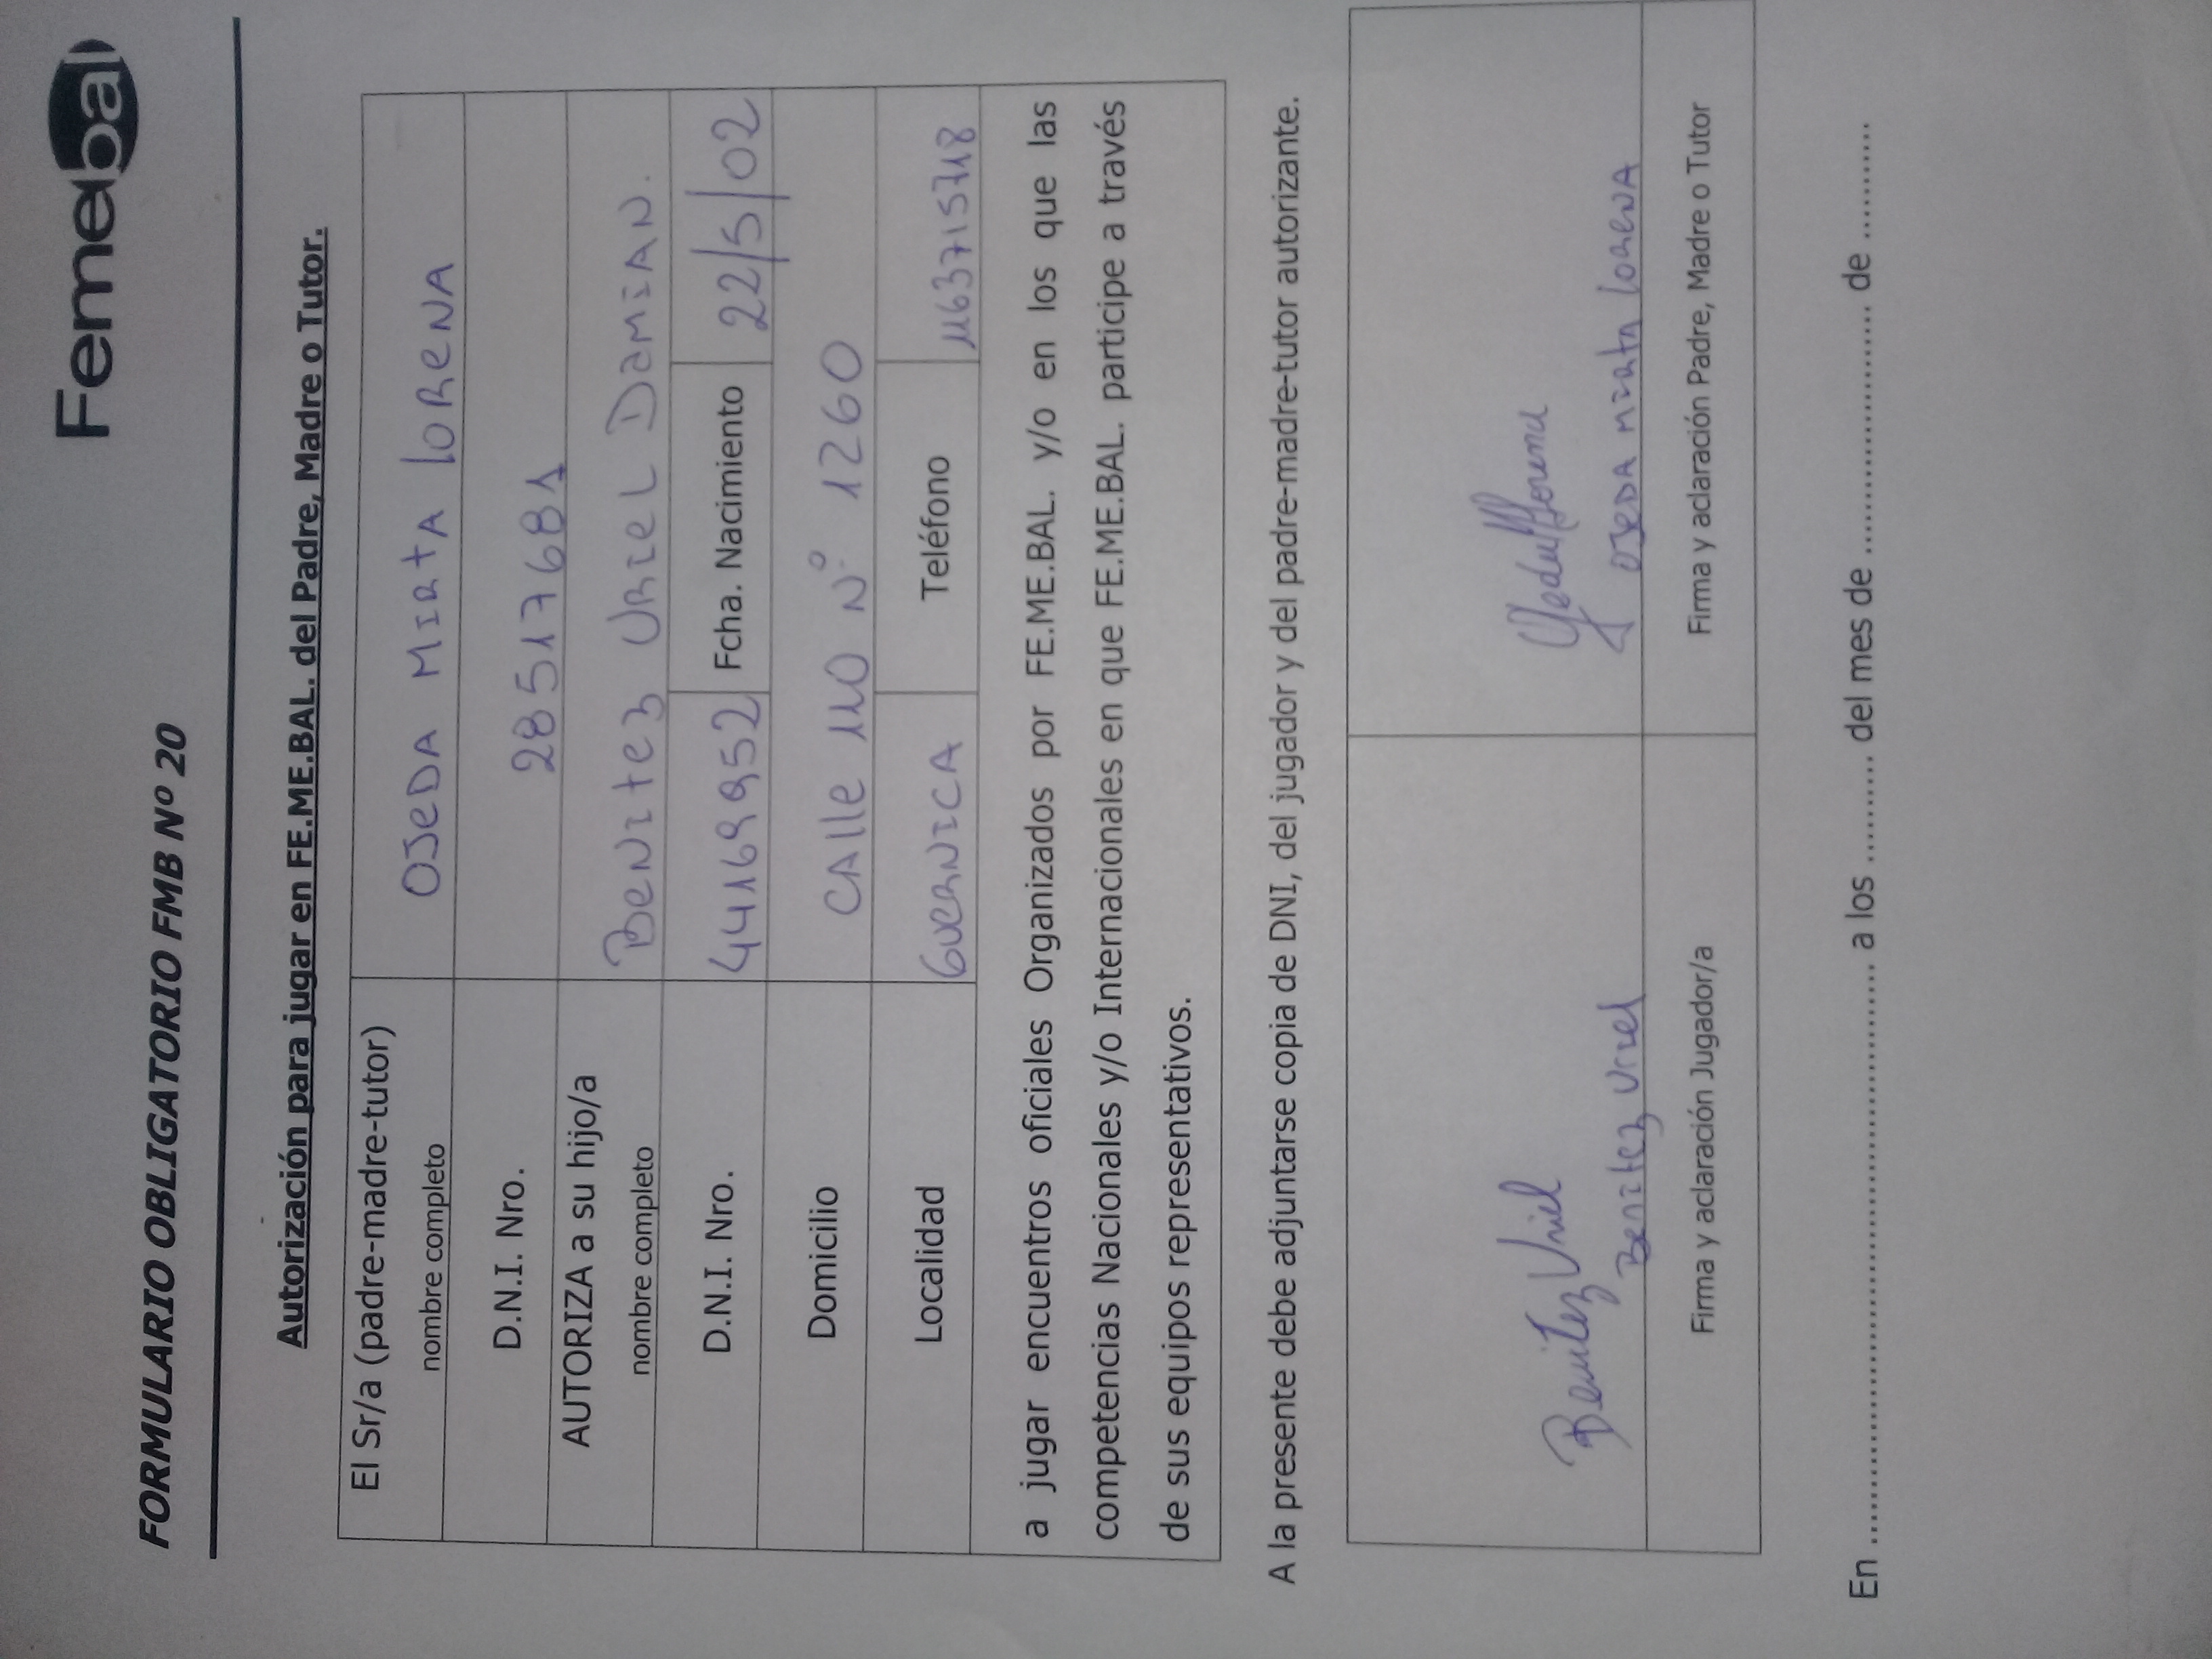 Femebal
FORMULARIO OBLIGATORIO FMB Nº 20
Autorización para jugar en FE.ME.BAL. del Padre, Madre o Tutor.
El Sr/a (padre-madre-tutor) nombre completo OJEDA MIRTA LORENA
D.N.I. Nro. 28517681
AUTORIZA a su hijo/a nombre completo BENITEZ URIEL DAMIAN.
D.N.I. Nro. 44169952 Fcha. Nacimiento 22/5/02
Domicilio CALLE 110 Nº 1260
Localidad GUERNICA Teléfono 1163715718
a jugar encuentros oficiales Organizados por FE.ME.BAL. y/o en los que las
competencias Nacionales y/o Internacionales en que FE.ME.BAL. participe a través
de sus equipos representativos.
A la presente debe adjuntarse copia de DNI, del jugador y del padre-madre-tutor autorizante.
Benitez Uriel
Benitez Uriel
Firma y aclaración Jugador/a
OJEDA MIRTA LORENA
Firma y aclaración Padre, Madre o Tutor
En ............................................................ a los ......... del mes de ......................... de ...........